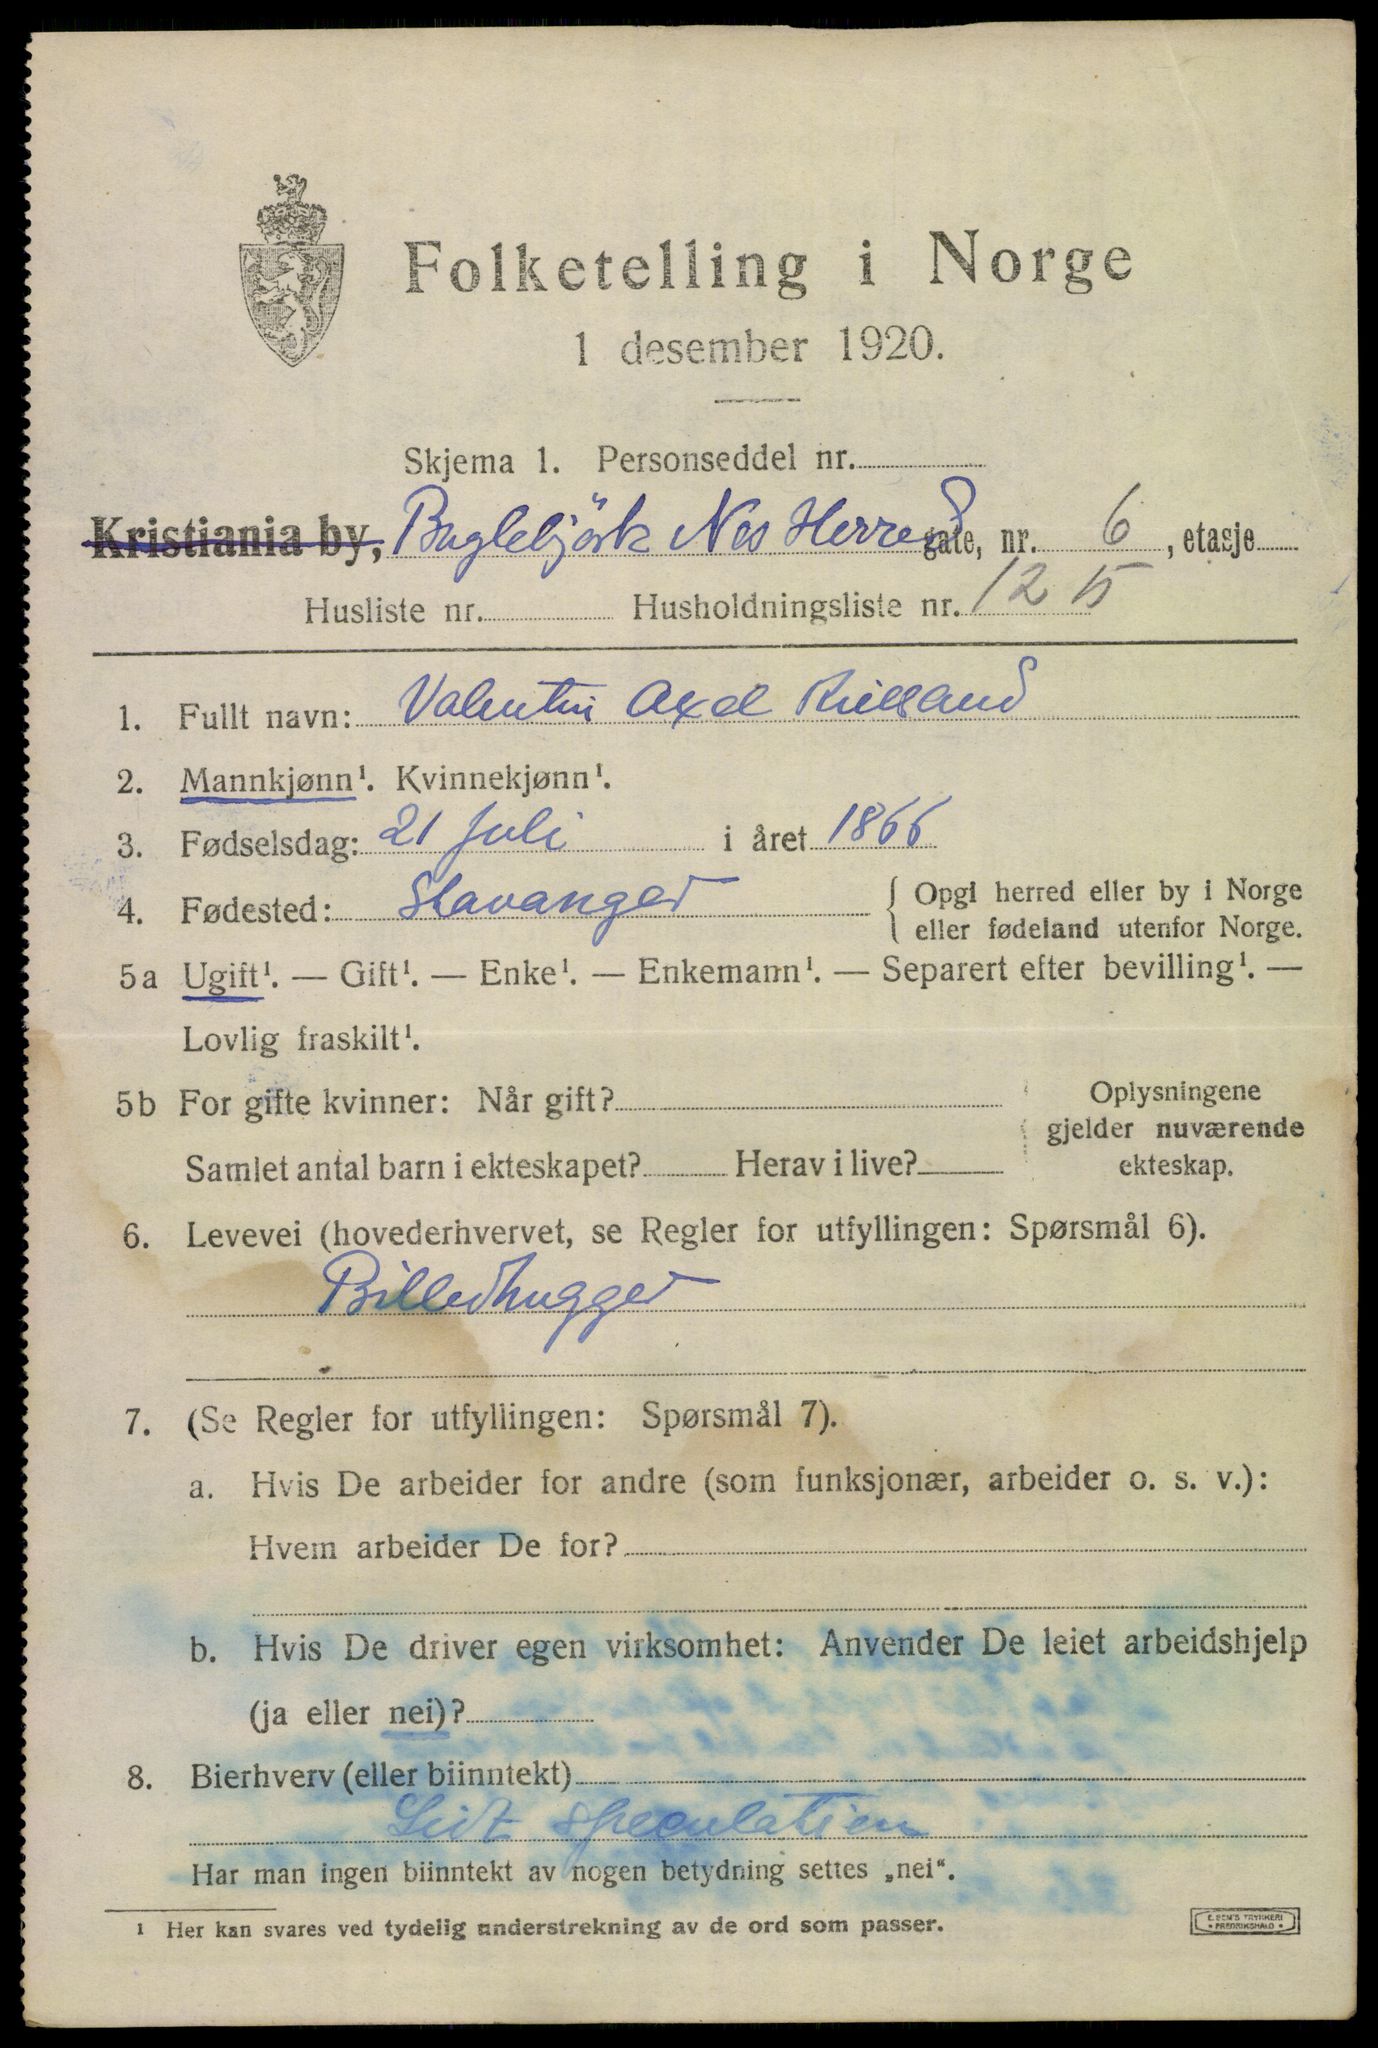 Folketelling i Norge
1 desember 1920.
Skjema 1. Personseddel nr.
Kristiania by, Buglebjörk Nes Herred gate, nr. 6, etasje
Husliste nr. Husholdningsliste nr. 12
1. Fullt navn: Valentin Axel Kielland
2. Mannkjønn¹. Kvinnekjønn¹.
3. Fødselsdag: 21 Juli i året 1866
4. Fødested: Stavanger { Opgi herred eller by i Norge
eller fødeland utenfor Norge.
5a Ugift¹. — Gift¹. — Enke¹. — Enkemann¹. — Separert efter bevilling¹. —
Lovlig fraskilt¹.
5b For gifte kvinner: Når gift?
Samlet antal barn i ekteskapet? Herav i live?
Oplysningene
gjelder nuværende
ekteskap.
6. Levevei (hovederhvervet, se Regler for utfyllingen: Spørsmål 6).
Billedhugger
7. (Se Regler for utfyllingen: Spørsmål 7).
a. Hvis De arbeider for andre (som funksjonær, arbeider o. s. v.):
Hvem arbeider De for?
b. Hvis De driver egen virksomhet: Anvender De leiet arbeidshjelp
(ja eller nei)?
8. Bierhverv (eller biinntekt)
Lidt speculation
Har man ingen biinntekt av nogen betydning settes „nei“.
¹ Her kan svares ved tydelig understrekning av de ord som passer.
E. SEM'S TRYKKERI
• FREDRIKSHALD •